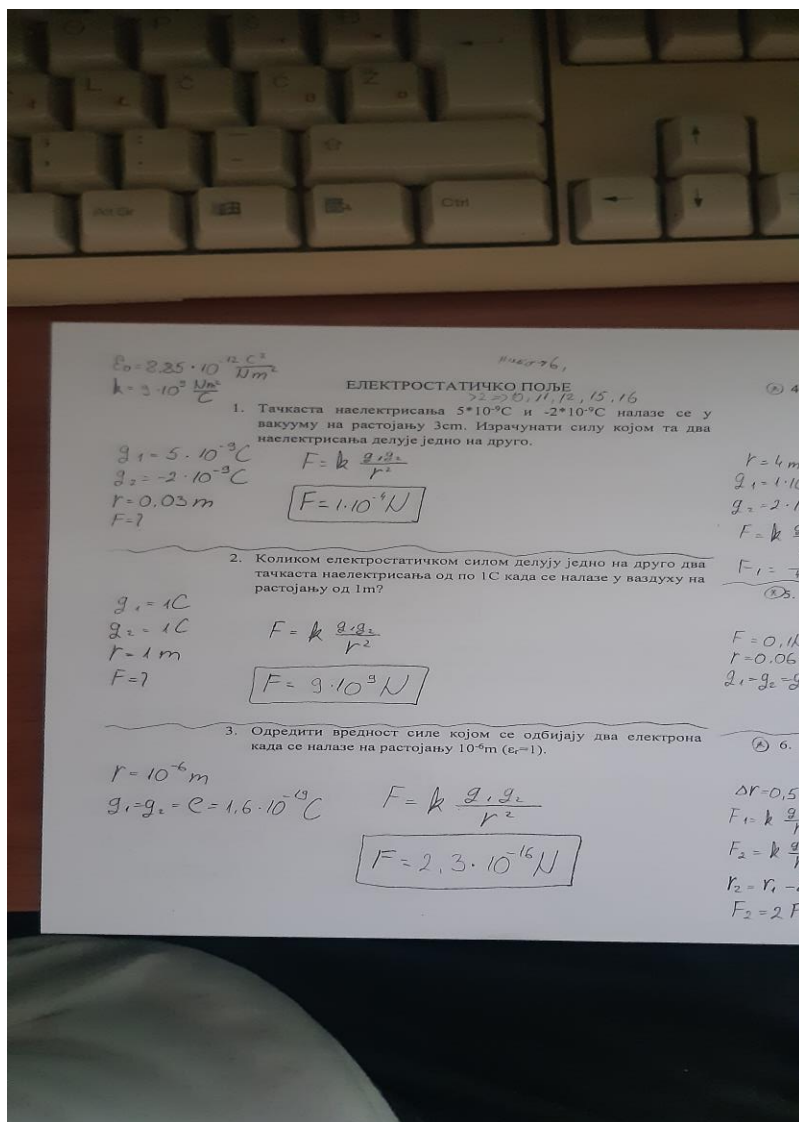 Ctrl
ε₀=8.85·10⁻¹² C²/Nm²
k=9·10⁹ Nm²/C
ЕЛЕКТРОСТАТИЧКО ПОЉЕ
11, 12, 15, 16
1. Тачкаста наелектрисања 5*10⁻⁹C и -2*10⁻⁹C налазе се у
вакууму на растојању 3cm. Израчунати силу којом та два
наелектрисања делује једно на друго.
g₁=5·10⁻⁹C
g₂=-2·10⁻⁹C
r=0.03m
F=?
F=k g₁g₂/r²
F=1·10⁻⁴N
2. Коликом електростатичком силом делују једно на друго два
тачкаста наелектрисања од по 1C када се налазе у ваздуху на
растојању од 1m?
g₁=1C
g₂=1C
r=1m
F=?
F=k g₁g₂/r²
F=9·10⁹N
3. Одредити вредност силе којом се одбијају два електрона
када се налазе на растојању 10⁻⁶m (εᵣ=1).
r=10⁻⁶m
g₁=g₂=e=1,6·10⁻¹⁹C
F=k g₁g₂/r²
F=2,3·10⁻¹⁶N
4
r=4m
g₁=1·10
g₂=2·1
F=k g
F₁=
5.
F=0,1
r=0.06
g₁=g₂=g
6.
Δr=0,5
F₁=k g/r
F₂=k g/r
r₂=r₁-
F₂=2F